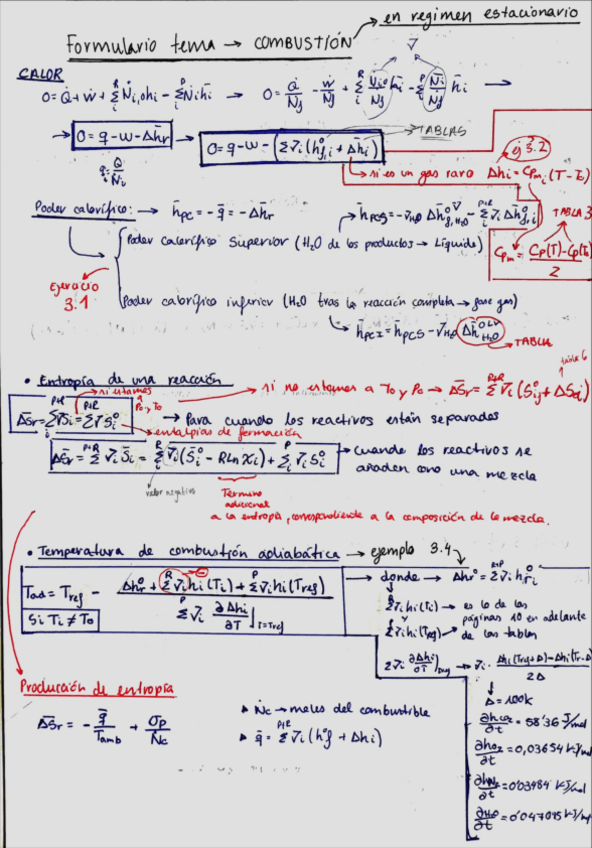 en regimen estacionario
Formulario tema → COMBUSTIÓN
CALOR
0 = Q̇ + Ẇ + Σ^R Ṅi,0 hi − Σ^P Ṅi h̄i → 0 = Q̇/Ṅf − Ẇ/Ṅf + Σ^R (Ṅi,0/Ṅf) h̄i − Σ^P (Ṅi/Ṅf) h̄i →
ν̄
→ 0 = q − w − Δh̄r → 0 = q − w − (Σ ν̄i (h°f,i + Δh̄i)) → TABLAS
q = Q̇/Ṅi
ej 3.2
si es un gas raro Δhi = Cpmi (T − T0)
TABLA 3
Cpm = (Cp(T) − Cp(T0))/2
Poder calorífico: → h̄pc = −q̄ = −Δh̄r
→ h̄PCS = −ν̄H2O Δh̄°f,H2O − Σ^P+R ν̄i Δh̄°f,i
Poder calorífico Superior (H2O de los productos → Líquide)
Ejercicio
3.1
Poder calorífico inferior (H2O tras la reacción completa → fase gas)
→ h̄PCI = h̄PCS − ν̄H2O Δh̄°LV H2O
→ TABLA
tabla 6
• Entropía de una reacción
si estamos
a P0 y T0
si no estamos a T0 y P0 → Δ̄Sr = Σ^P+R ν̄i (S°ij + ΔSai)
Δ̄Sr = Σ^P+R ν̄ S̄i = Σ^P+R ν̄ S̄i° → Para cuando los reactivos están separados
→ entalpias de formación
Δ̄Sr = Σ^P+R ν̄i S̄i = Σ^R ν̄i (S̄i° − R Ln Xi) + Σ^P ν̄i Si° → Cuando los reactivos se
añaden como una mezcla
valor negativo
Término
adicional
a la entropía, correspondiente a la composición de la mezcla.
• Temperatura de combustión adiabática → ejemplo 3.4
Tad = Tref − (Δh°r + Σ^R ν̄i hi (Ti) + Σ^P ν̄i hi (Tref)) / (Σ^P ν̄i ∂Δhi/∂T |T=Tref)
Si Ti ≠ T0
→ donde → Δh°r = Σ^R+P ν̄i h°fi
Σ^R ν̄i hi (Ti) → es lo de las
y
páginas 10 en adelante
Σ^P ν̄i hi (Tref) → de las tablas
Σ ν̄i ∂Δhi/∂T)Tref → ν̄i · (Δhi(Tref+Δ) − Δhi(Tr−Δ))/2Δ
Δ = 100K
∂hCO2/∂t = 58'36 J/mol
∂hO2/∂t = 0,03654 kJ/mol
∂hN2/∂t = 0'03484 kJ/mol
∂hH2O/∂t = 0'047045 kJ/mol
Producción de entropía
Δ̄Sr = − q̄/Tamb + σ̇p/Ṅc
▸ Ṅc → moles del combustible
▸ q̄ = Σ^P+R ν̄i (h°f + Δhi)